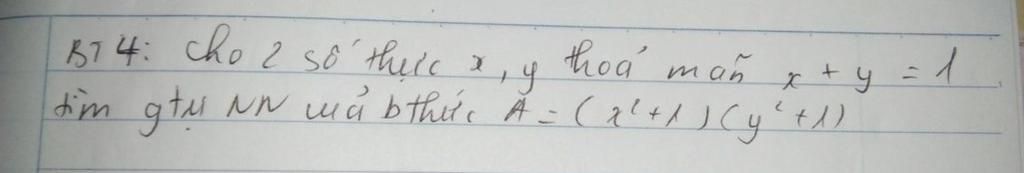 BT 4: Cho 2 số thực x, y thoả mãn x + y = 1
tìm gtrị NN của bthức A = (x²+1)(y²+1)